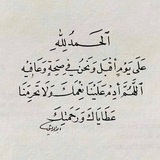 الحمد لله
على يوم أقبل ونحن في صحة وعافيه
اللهم أدم علينا نعمك ولا تحرمنا
عطاياك ورحمتك